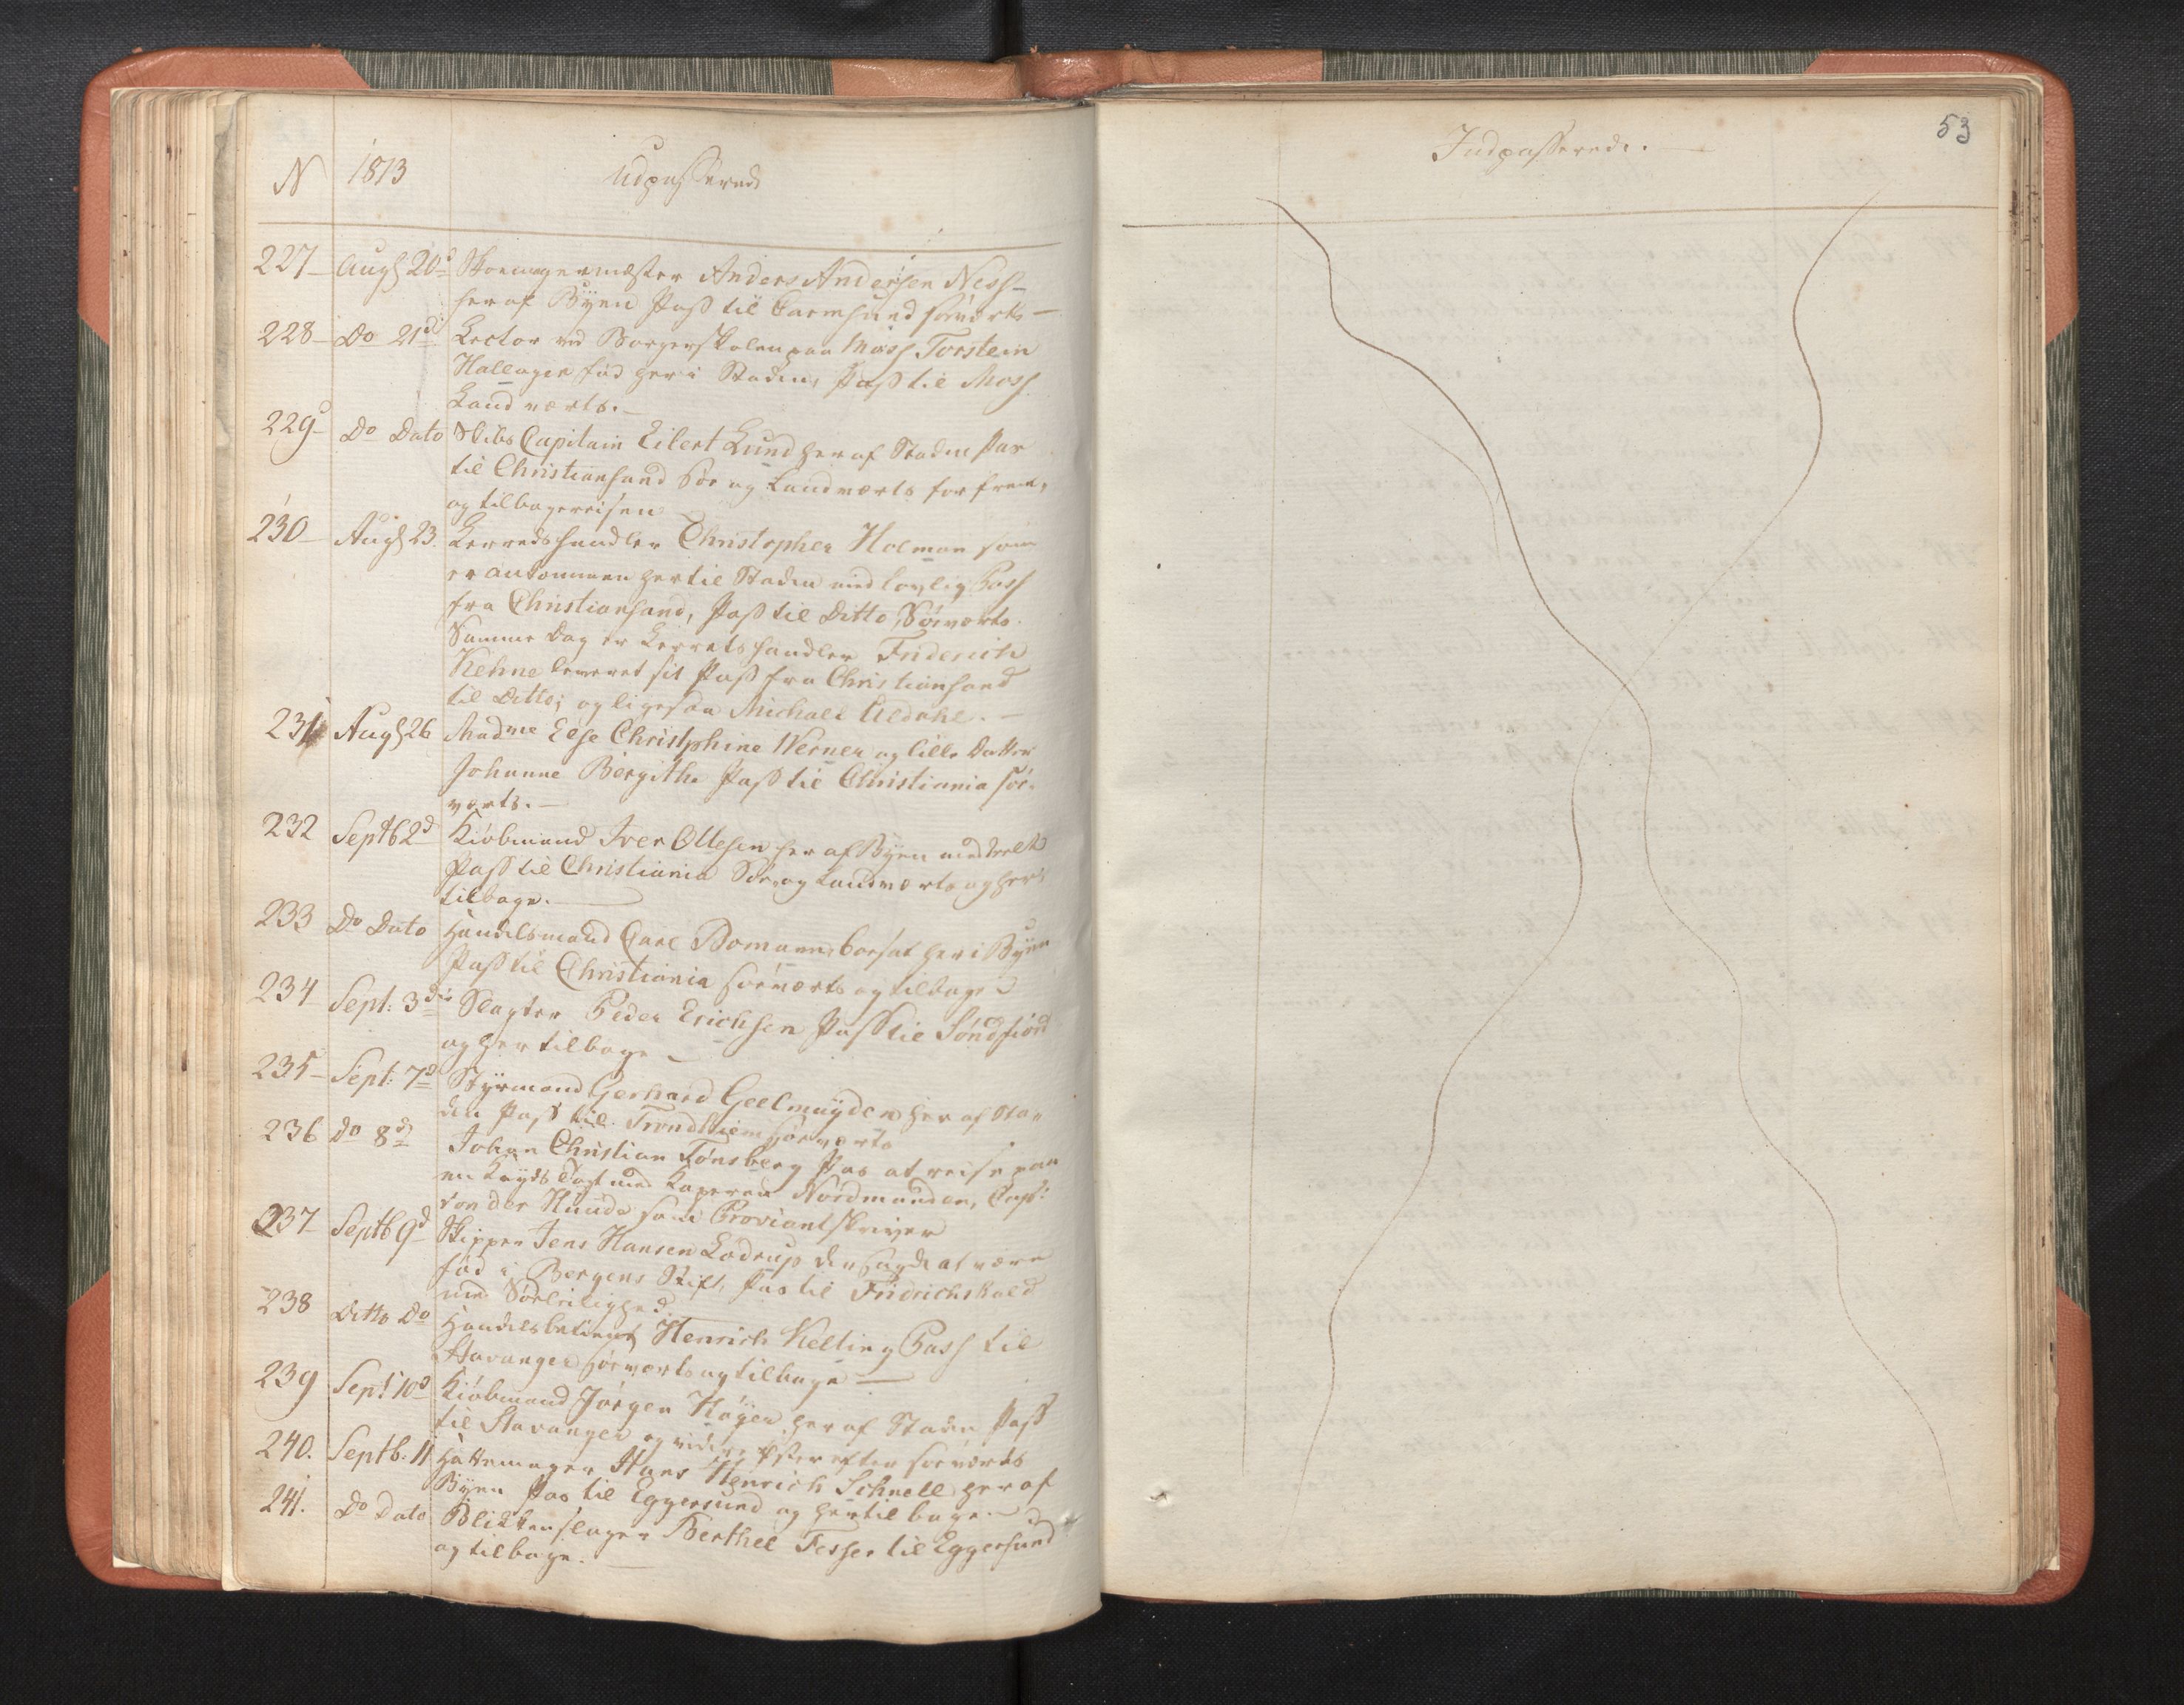 N 1813 Udpasserede
227 Augs 20d Skomagermæster Anders Andersen Ness
her af Byen Pass til Carmsund søeværts
228 Do 21d Lector ved Borgerskolen paa Moss Torstein
Hallager fød her i Staden, Pass til Moss
Landværts.
229 Do Dato Skibs Capitain Eilert Lund her af Staden Pas
til Christiansand Søe og Landværts for frem,
og tilbagereisen
230 Augs 23. Lerredshandler Christopher Holman som
er ankommen her til Staden med lovlig Pass
fra Christiansand, Pass til Ditto, Søeværts.
Samme Dag er Lerretshandler Friderich
Kehne leveret sit Pass fra Christiansand
til Ditto; og ligesaa Michael Uldahl.
231 Augs 26 Madme Else Christphine Werner og lille Datter
Johanne Bergithe Pass til Christiania søe-
værts.
232 Septb 2d Kiøbmand Iver Ollesen her af Byen meddeelt
Pass til Christiania Søe, og Landværts og her,
tilbage.
233 Do Dato Handelsmand Carl Bomann, borsat her i Byen
Pass til Christiania søeværts og tilbage
234 Sept: 3die Slagter Peder Erichsen Pass til Søndfiord
og her tilbage
235 Sept: 7d Styrmand Gerhard Geelmuyden her af Sta-
den Pass til Trondhiem søeværts
236 do 8d Johan Christian Tønsberg Pas at reise paa
en Krydstogt med Kaperen Nordmanden, Capt:
von der Hude som Proviantskriver
237 Septb 9d Skipper Jens Hansen Lodrup den sagde at være
fød i Bergens Stift, Pas til Fridrichshald
med Søeleilighed.
238 Ditto Do Handelsbetient Henrich Kelting Pass til
Stavanger søeværts og tilbage
239 Sept 10d Kiøbmand Jørgen Høyer her af Staden Pass
til Stavanger og videre øster efter søeværts
240. Septb. 11 Hattemager Hans Henrich Schnell her af
Byen Pas til Eggersund og her tilbage.
241. Do Dato Blikkenslager Berthel Fesser til Eggersund
og tilbage.
Indpasserede.
53